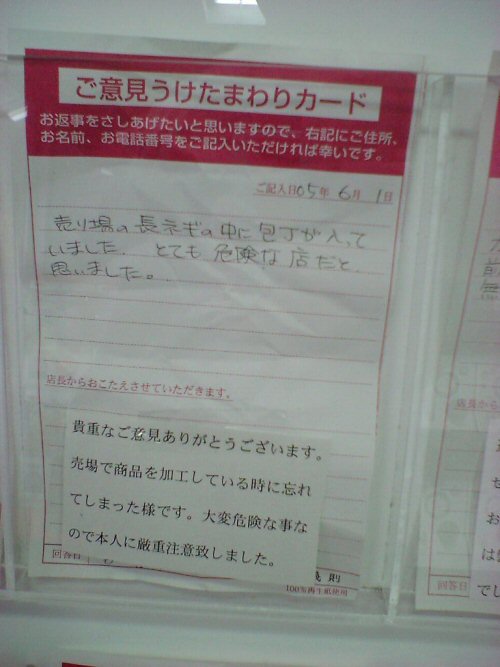 ご意見うけたまわりカード
お返事をさしあげたいと思いますので、右記にご住所、
お名前、お電話番号をご記入いただければ幸いです。
ご記入日05年 6月 1日
売り場の長ネギの中に包丁が入って
いました. とても危険な店だと
思いました。
店長からおこたえさせていただきます。
貴重なご意見ありがとうございます。
売場で商品を加工している時に忘れ
てしまった様です。大変危険な事な
ので本人に厳重注意致しました。
回答日
則
100%再生紙使用
店長から
回答日